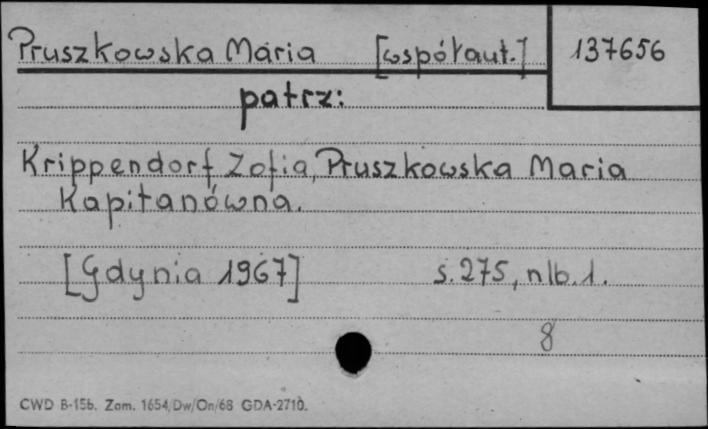 Pruszkowska Maria [współaut.] 137656
patrz:
Krippendorf Zofia, Pruszkowska Maria
Kapitanówna.
[Gdynia 1967] s. 275, nlb. 1.
8
CWD B-15b. Zam. 1654/Dw/On/68 GDA-2710.